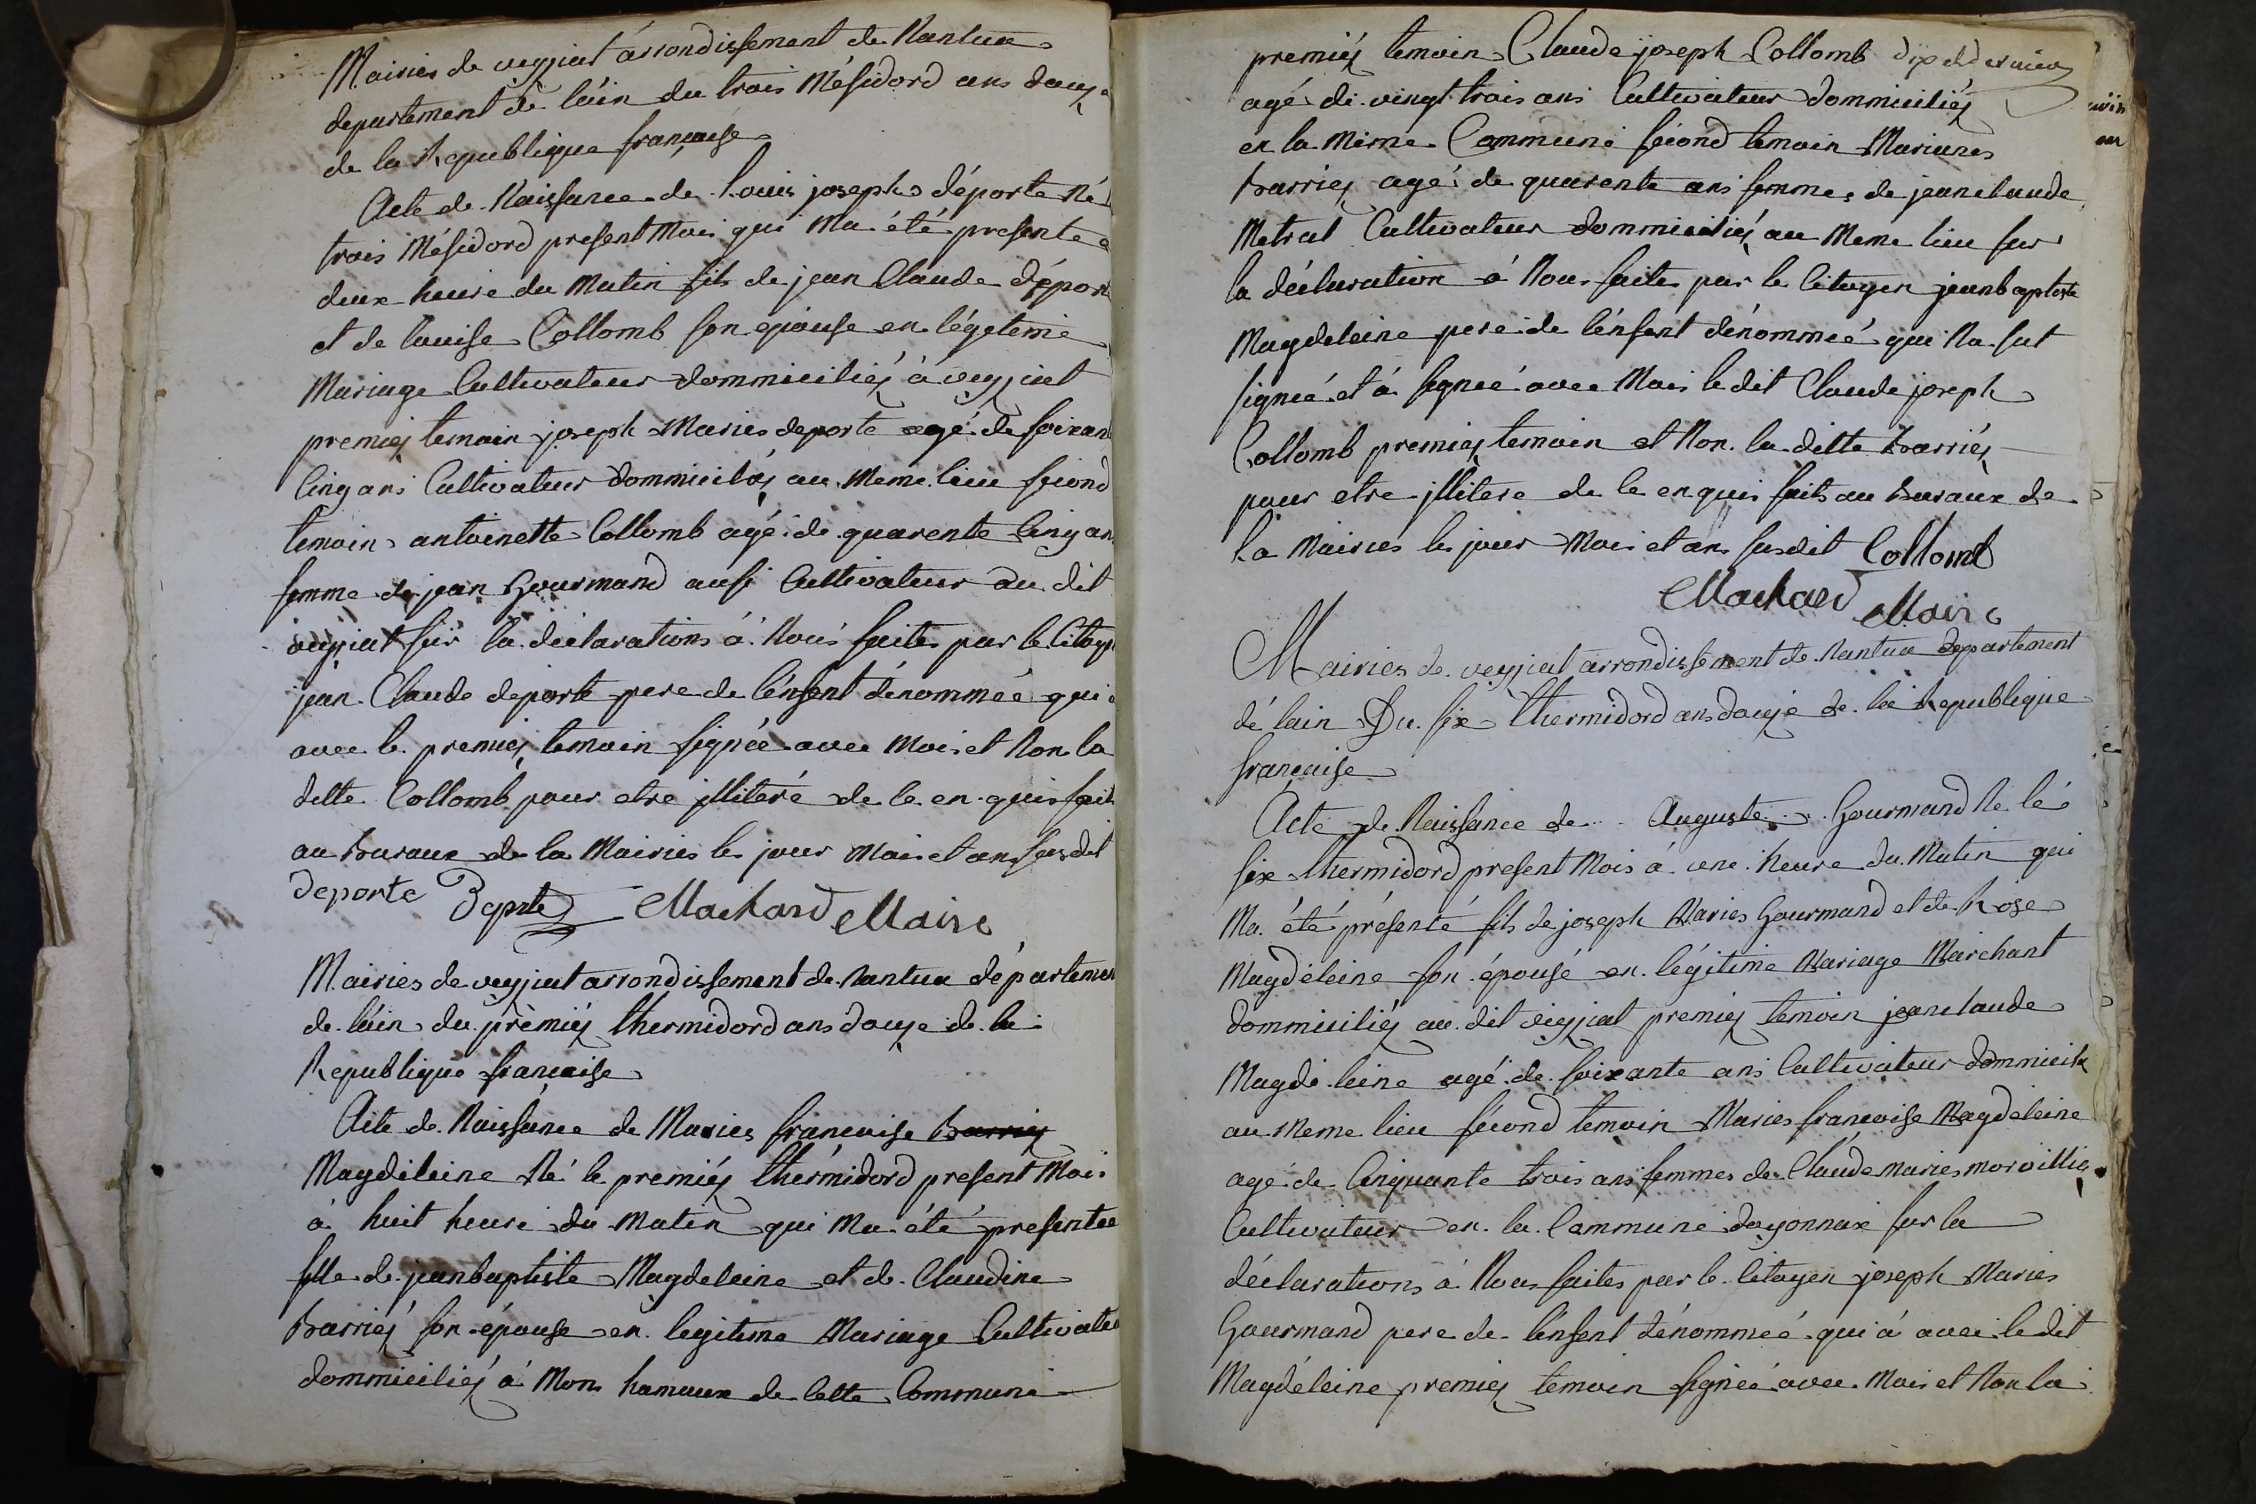 Mairies de veyziat árrondissement de Nantua
departement de láin du trois Mésidord ans douze
de la Republique française
Acte de Naissance de Louis joseph déporte Né
trois Mésidord present Mois qui Ma été presente a
deux heure du Matin fils de jean Claude dépor
et de louise Collomb son epouse en légeteme
Mariage Cultivateur dommiciliéz à veyziat
premiez temoin joseph Maries deporte agé de soixan
Cinq ans Cultivateur dommiciliéz au Meme lieu second
temoin antoinette Collomb agé de quarente Cinq an
femme de jean Gourmand aussi Cultivateur au dit
veyziat sur la déclarations á Nous faites par le Citoy
jean Claude deporte pere de lénfent dénommée qui a
avec le premiez temoin signée avec Mois et Non la
ditte Collomb pour etre jlliteré de le enquis fait
au Buraux de la Mairies les jour Mois et ans susdit
deporte Deporte Machard Maire
Mairies de veyziat arrondissement de Nantua départemen
de láin du prèmiéz thermidord ans douze de la
Republique francaise
Acte de Naissance de Maries francoise Barriez
Magdeleine Né le premiéz thérmidord present Mois
á huit heure du Matin qui Ma été presentee
fille de jeanbaptiste Magdeleine et de Claudine
Barriéz son épouse en legitime Mariage Cultivateu
dommiciliéz á Mons hamaux de Cette Commune
premiéz temoin Claude joseph Collomb
agé de vingt trois ans Cultivateur dommiciliéz
en la Meme Commune second temoin Marianes
Barriez agé de quarente ans femme de jeanclaude
Metral Cultivateur dommiciliéz au Meme lieu sur
la déclaration á Nous faites par le Citoyen jeanbaptiste
Magdeleine pere de lénfent dénommeé qui Na sut
signeé et á signeé avec Mois le dit Claude joseph
Collomb premiez temoin et Non la ditte Barriéz
pour etre jlliterе de le enquis faits au Buraux de
la Mairies les jour Mois et ans susdit Collomb
Machard Maire
Mairies de veyziat arrondissement de Nantua departement
dé lain Du six thermidord ans douze de la Republique
française
Acte de Naissance de Auguste Gourmand Né lé
six thermidord present Mois á une heure du Matin qui
Ma été présenté fils de joseph Maries Gourmand et de Rose
Magdeleine son épousé en légitime Mariage Marchant
dommiciliéz au dit veyziat premiez temoin jeanclaude
Magdeleine agé de soixante ans Cultivateur dommicil
au Meme lieu sécond temoin Maries francoise Magdeleine
agé de Cinquante trois ans femmes de Claude maries morvilliez
Cultivateur en la Commune doyonnax sur la
déclarations á Nous faites par le Citoyen joseph Maries
Gourmand pere de lénfent dénommeé qui á avec le dit
Magdéleine premiez temoin signeé avec Mois et Non la